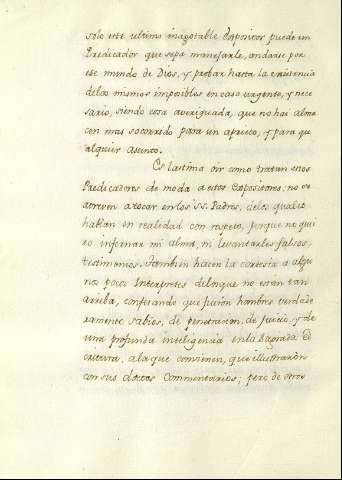 solo este ultimo inagotable Expositor puede un
Predicador que sepa manejarle, andarse por
ese mundo de Dios, y probar hasta la existencia
delos mismos imposibles en caso urgente, y nece
sario, siendo cosa averiguada, que no hai alma
cen mas socorrido para un aprieto, y para qu
alquier asunto.
Es lastima oir como tratan esos
Predicadores de moda a estos Expositores, no se
atreven a tocar en los SS. Padres, delos quales
hablan en realidad con respeto, porque no qui
ero infernar mi alma, ni levantarles falsos,
testimonios. Tambien hacen la cortesia a algu
nos pocos Interpretes delo que no estan tan
arriba, confesando que fueron hombres verdade
ramente sabios, de penetracion, de juicio, y de
una profunda inteligencia en la Sagrada Es
critura, ala que convienen, que illustraron
con sus doctos Commentarios; pero de otros